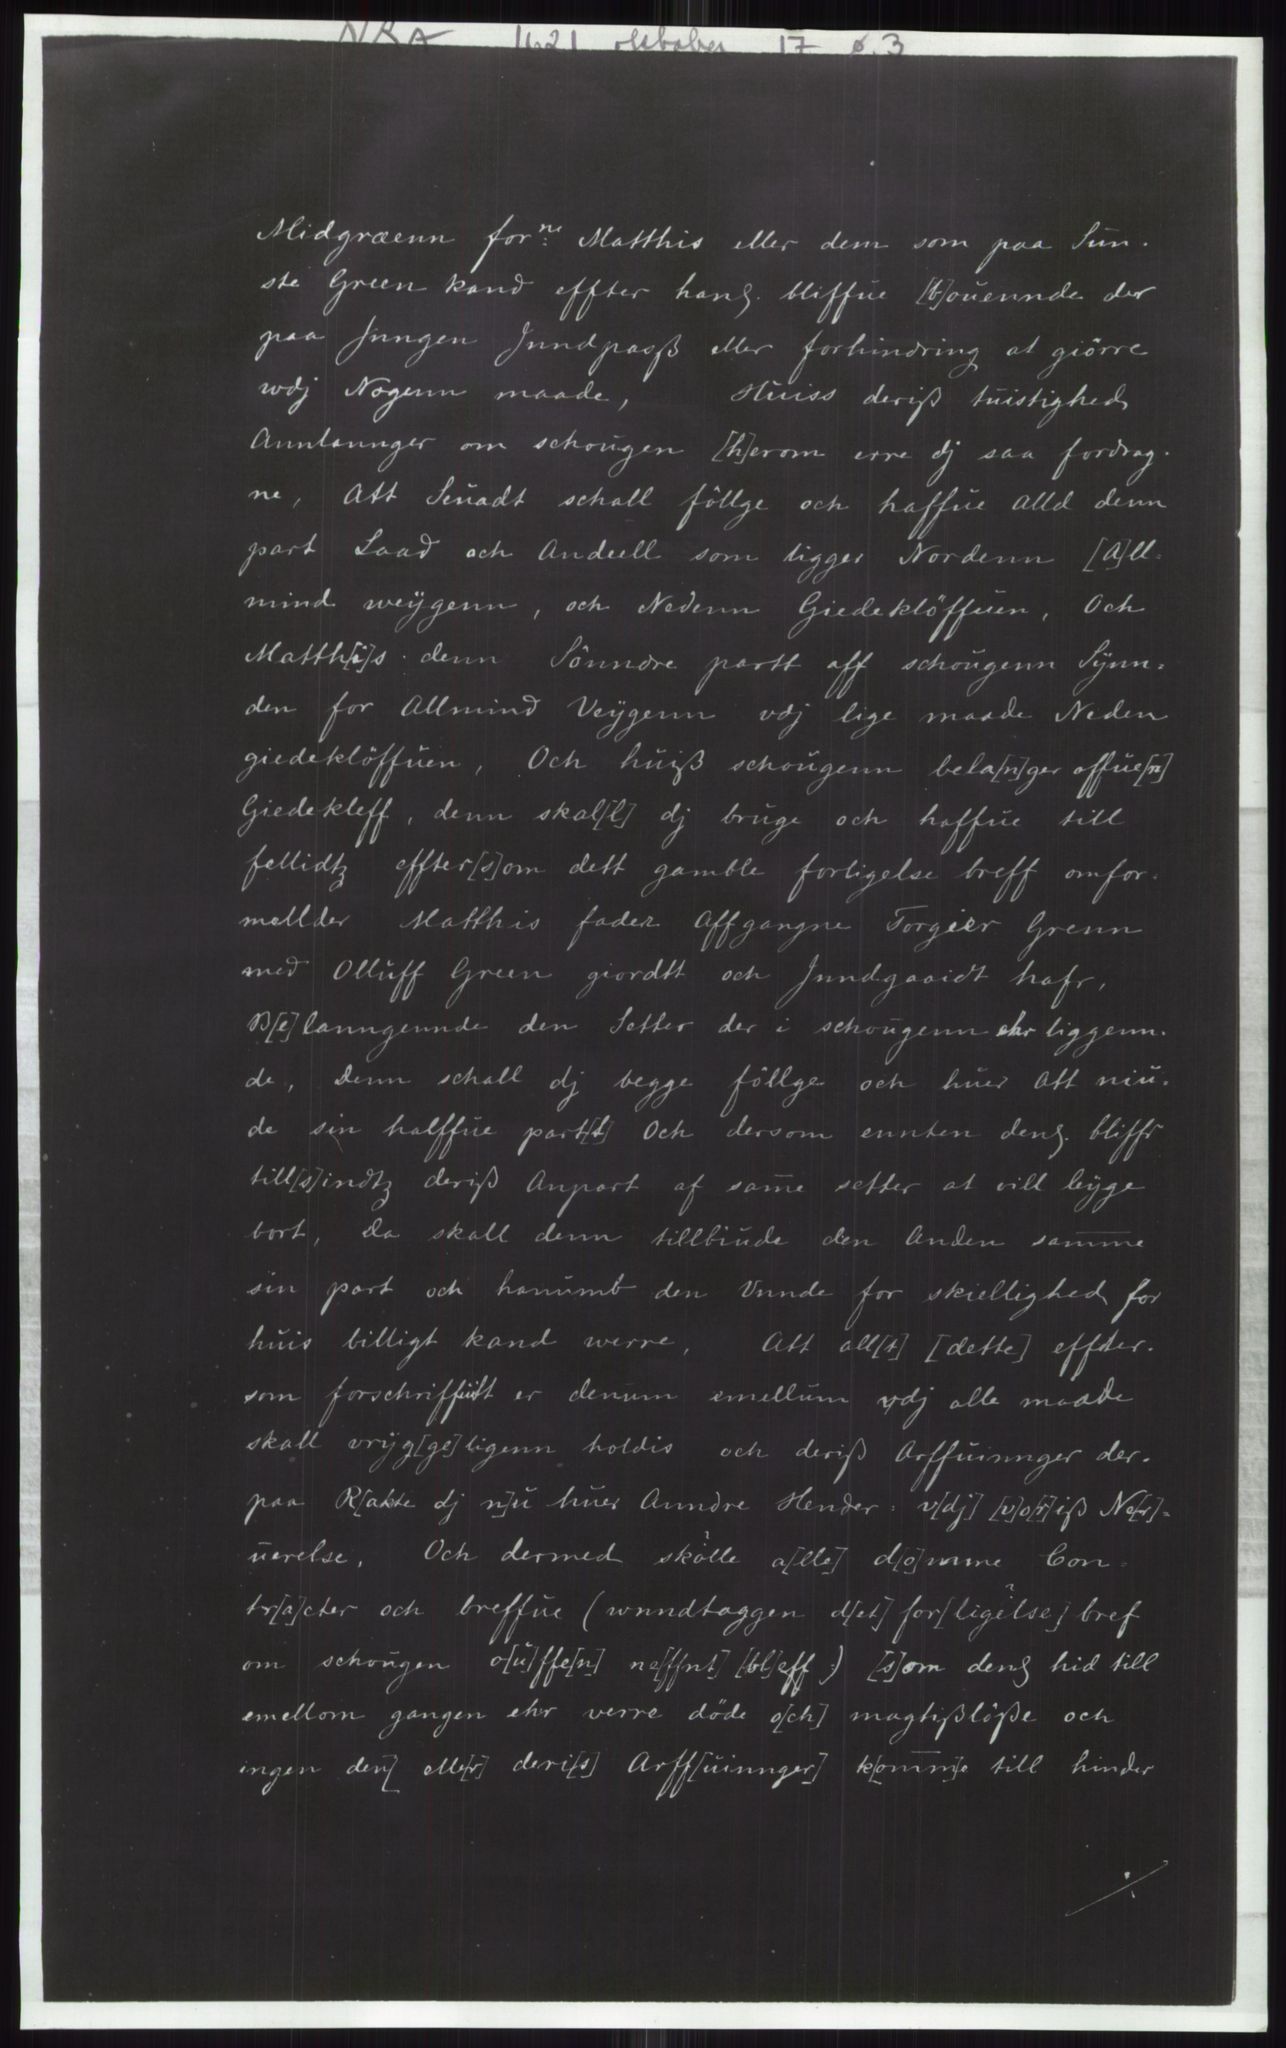 NRA 1621 oktober 17 s. 3
Midgræenn for:ne Matthis eller dem som paa Sün-
ste Green kand effter hans bliffue [b]oüennde der
paa Jnngen Jnndpasß eller forhindring at giörre
wdj Nogenn maade, Hüiss deriß tüistigheds
Annlannger om schoügen [h]erom erre dj saa fordrag-
ne, Att Seüadt schall föllge och haffüe alld denn
part Laad och Andeell som ligger Nordenn [A]ll-
mind weÿgenn, och Nedenn Giedeklöffüen, Och
Matth[i]s denn Sönndre partt aff schoügenn Sÿnn-
den for Allmind Veÿgenn vdj lige maade Neden
giedeklöffüen, Och hüiß schoügenn bela[n]ger offüe[n]
Giedekleff, denn skal[l] dj brüge och haffüe till
fellidtz effter[s]om dett gamble forligelse breff omfor-
mellder Matthis fader Affgangne Torgier Grenn
med Ollüff Green giordtt och Jnndgaaidt hafr,
B[e]lanngennde den Setter der i schoügenn ehr liggenn-
de, Denn schall dj begge föllge och huer Att niü-
de sin halffüe part[t] Och dersom ennten dens bliffr
till[s]indtz deriß Anpart af same setter at vill leÿge
bort, Da skall denn tillbiüde den Anden samme
sin part och hanümb den Vnnde for skiellighed for
hüis billigt kand werre, Att all[t] [dette] effter-
som forschriffüit er denüm emellüm vdj alle maade
skall vrÿg[ge]ligenn holdis och deriß Arffüinnger der-
paa R[akte dj n]ü hüer Anndre Hender: v[dj] [v]o[r]iß Ne[r]-
üerelse, Och dermed skölle a[lle] d[o]mme Con-
tr[a]cter och breffüe (wnndtaggen d[et] for[ligelse] bref
om schoügen o[ü]ffe[n] ne[ffnt] [bl]eff:) [s]om dens hid till
emellom gangen ehr verre döde o[ch] magtißlöße och
ingen den[ elle[r] deri[s] Arff[üinnger] k[omm]e till hinder